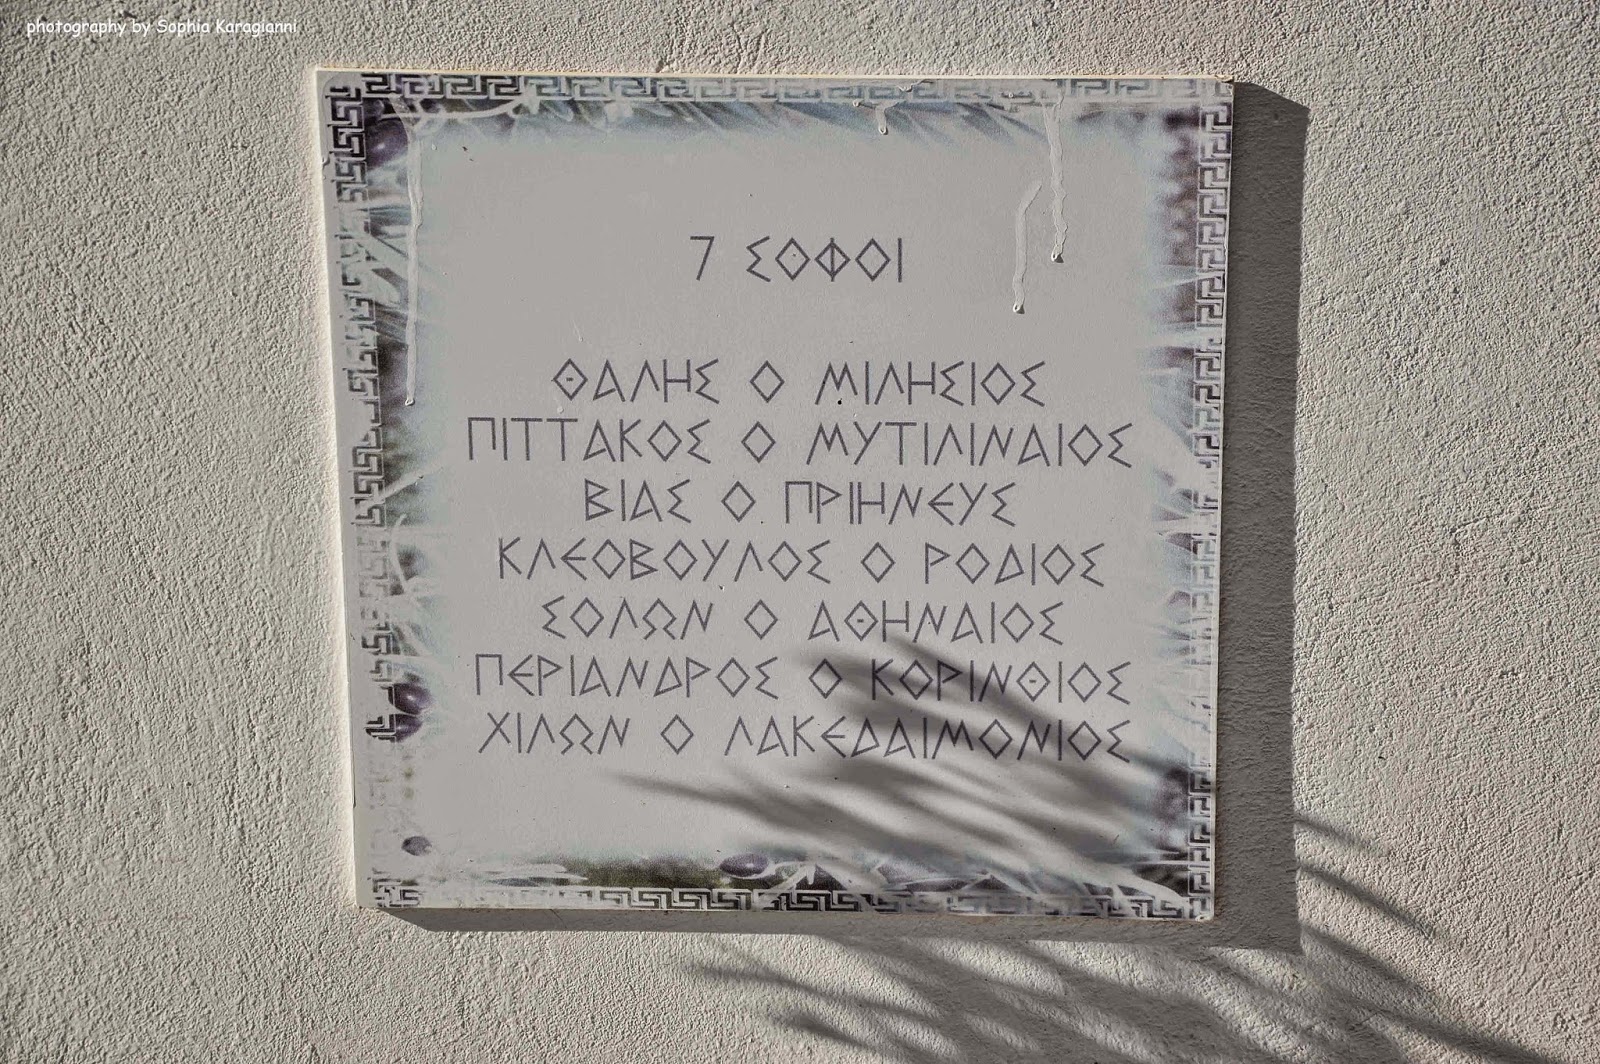 photography by Sophia Karagianni
7 ΣΟΦΟΙ
ΘΑΛΗΣ Ο ΜΙΛΗΣΙΟΣ
ΠΙΤΤΑΚΟΣ Ο ΜΥΤΙΛΙΝΑΙΟΣ
ΒΙΑΣ Ο ΠΡΙΗΝΕΥΣ
ΚΛΕΟΒΟΥΛΟΣ Ο ΡΟΔΙΟΣ
ΣΟΛΩΝ Ο ΑΘΗΝΑΙΟΣ
ΠΕΡΙΑΝΔΡΟΣ Ο ΚΟΡΙΝΘΙΟΣ
ΧΙΛΩΝ Ο ΛΑΚΕΔΑΙΜΟΝΙΟΣ